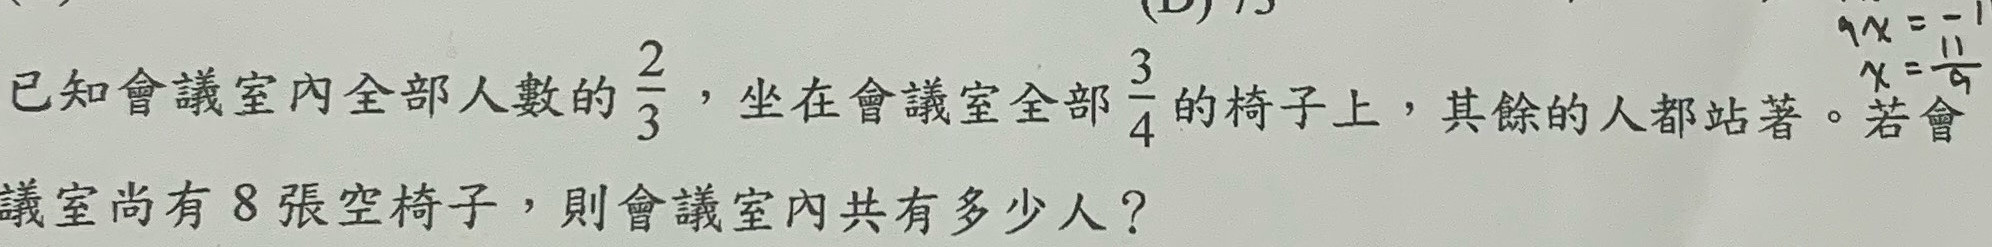 (D) 75
9x = -1
x = 11/9
已知會議室內全部人數的 2/3 ，坐在會議室全部 3/4 的椅子上，其餘的人都站著。若會
議室尚有 8 張空椅子，則會議室內共有多少人？